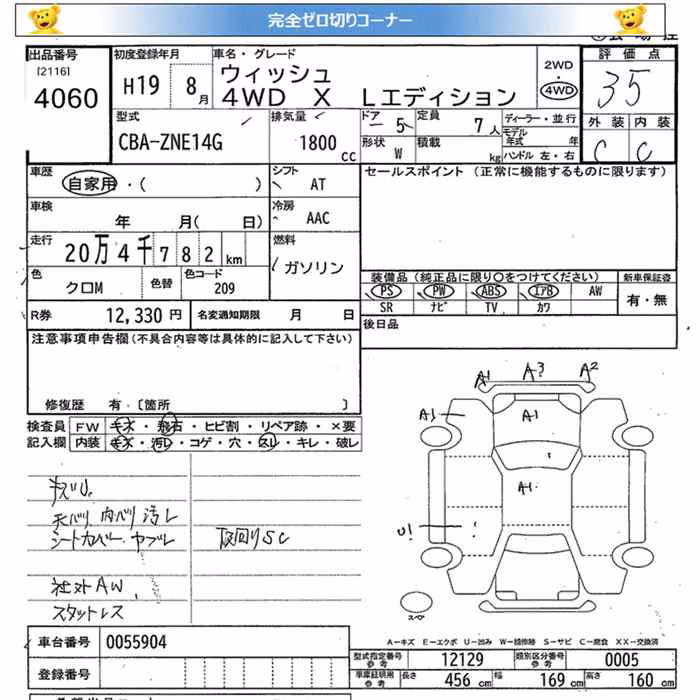 完全ゼロ切りコーナー
出品番号
[2116]
4060
初度登録年月
H19 8月
車名・グレード
ウィッシュ
4WD X Lエディション
2WD
・
4WD
評価点
35
外装 内装
C C
型式
CBA-ZNE14G
排気量
1800 CC
ドア
5
形状
W
定員
7人
積載
kg
ディーラー・並行
モデル年式 年
ハンドル 左・右
車歴
自家用・( )
シフト
AT
セールスポイント (正常に機能するものに限ります)
車検
年 月( 日)
冷房
AAC
走行
20万4千782km
燃料
ガソリン
色
クロM
色替
色コード
209
装備品(純正品に限り○をつけてください)
新車保証書
PS PW ABS エアB AW
SR ナビ TV カワ
有・無
R券 12,330円
名変通知期限 月 日
後日品
注意事項申告欄(不具合内容等は具体的に記入して下さい)
修復歴 有・〔箇所 〕
検査員
記入欄
FW キズ・飛石・ヒビ割・リペア跡・×要
内装 キズ・汚レ・コゲ・穴・スレ・キレ・破レ
A1 A3 A2
A1
A1
A1
U1
天バリ 内バリ 汚レ
シートカバー ヤブレ
下回りSC
社外AW
スタットレス
スペア
A-キズ E-エクボ U-凹み W-補修跡 S-サビ C-腐食 XX-交換済
車台番号 0055904
登録番号
型式指定番号
参考
12129
類別区分番号
参考
0005
車庫証明用
参考
長さ 456 cm 幅 169 cm 高さ 160 cm